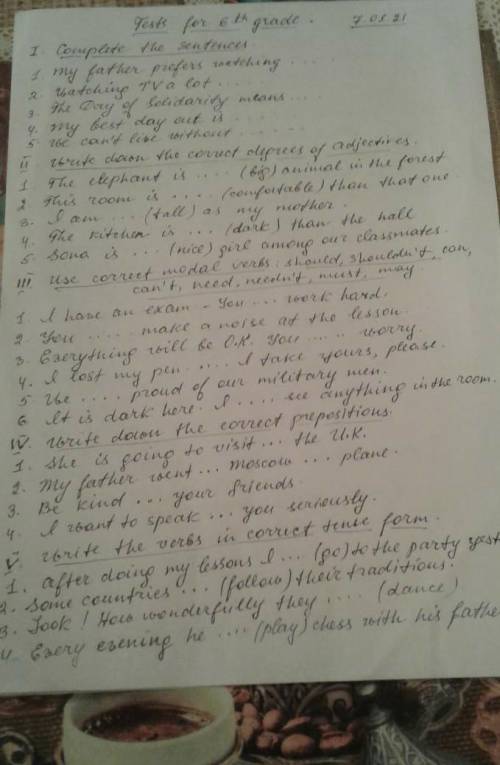 Tests for 6th grade. 7.05.21
I. Complete the sentences.
1. My father prefers watching ....
2. Watching TV a lot ....
3. The Day of Solidarity means ....
4. My best day out is ....
5. We can't live without ......
II. Write down the correct degrees of adjectives.
1. The elephant is .... (big) animal in the forest
2. This room is .... (comfortable) than that one.
3. I am ... (tall) as my mother.
4. The kitchen is ... (dark) than the hall
5. Sona is ... (nice) girl among our classmates.
III Use correct modal verbs: should, shouldn't, can,
can't, need, needn't, must, may.
1. I have an exam - You ... work hard.
2. You ..... make a noise at the lesson.
3. Everything will be O.K. You ..... worry.
4. I lost my pen. .... I take yours, please.
5. We .... proud of our military men.
6. It is dark here. I .... see anything in the room.
IV. Write down the correct prepositions.
1. She is going to visit ... the U.K.
2. My father went ... Moscow ... plane.
3. Be kind ... your friends.
4. I want to speak ... you seriously.
V. Write the verbs in correct tense form.
1. After doing my lessons I ... (go) to the party yest
2. Some countries .... (follow) their traditions.
3. Look! How wonderfully they .... (dance)
4. Every evening he .... (play) chess with his fathe